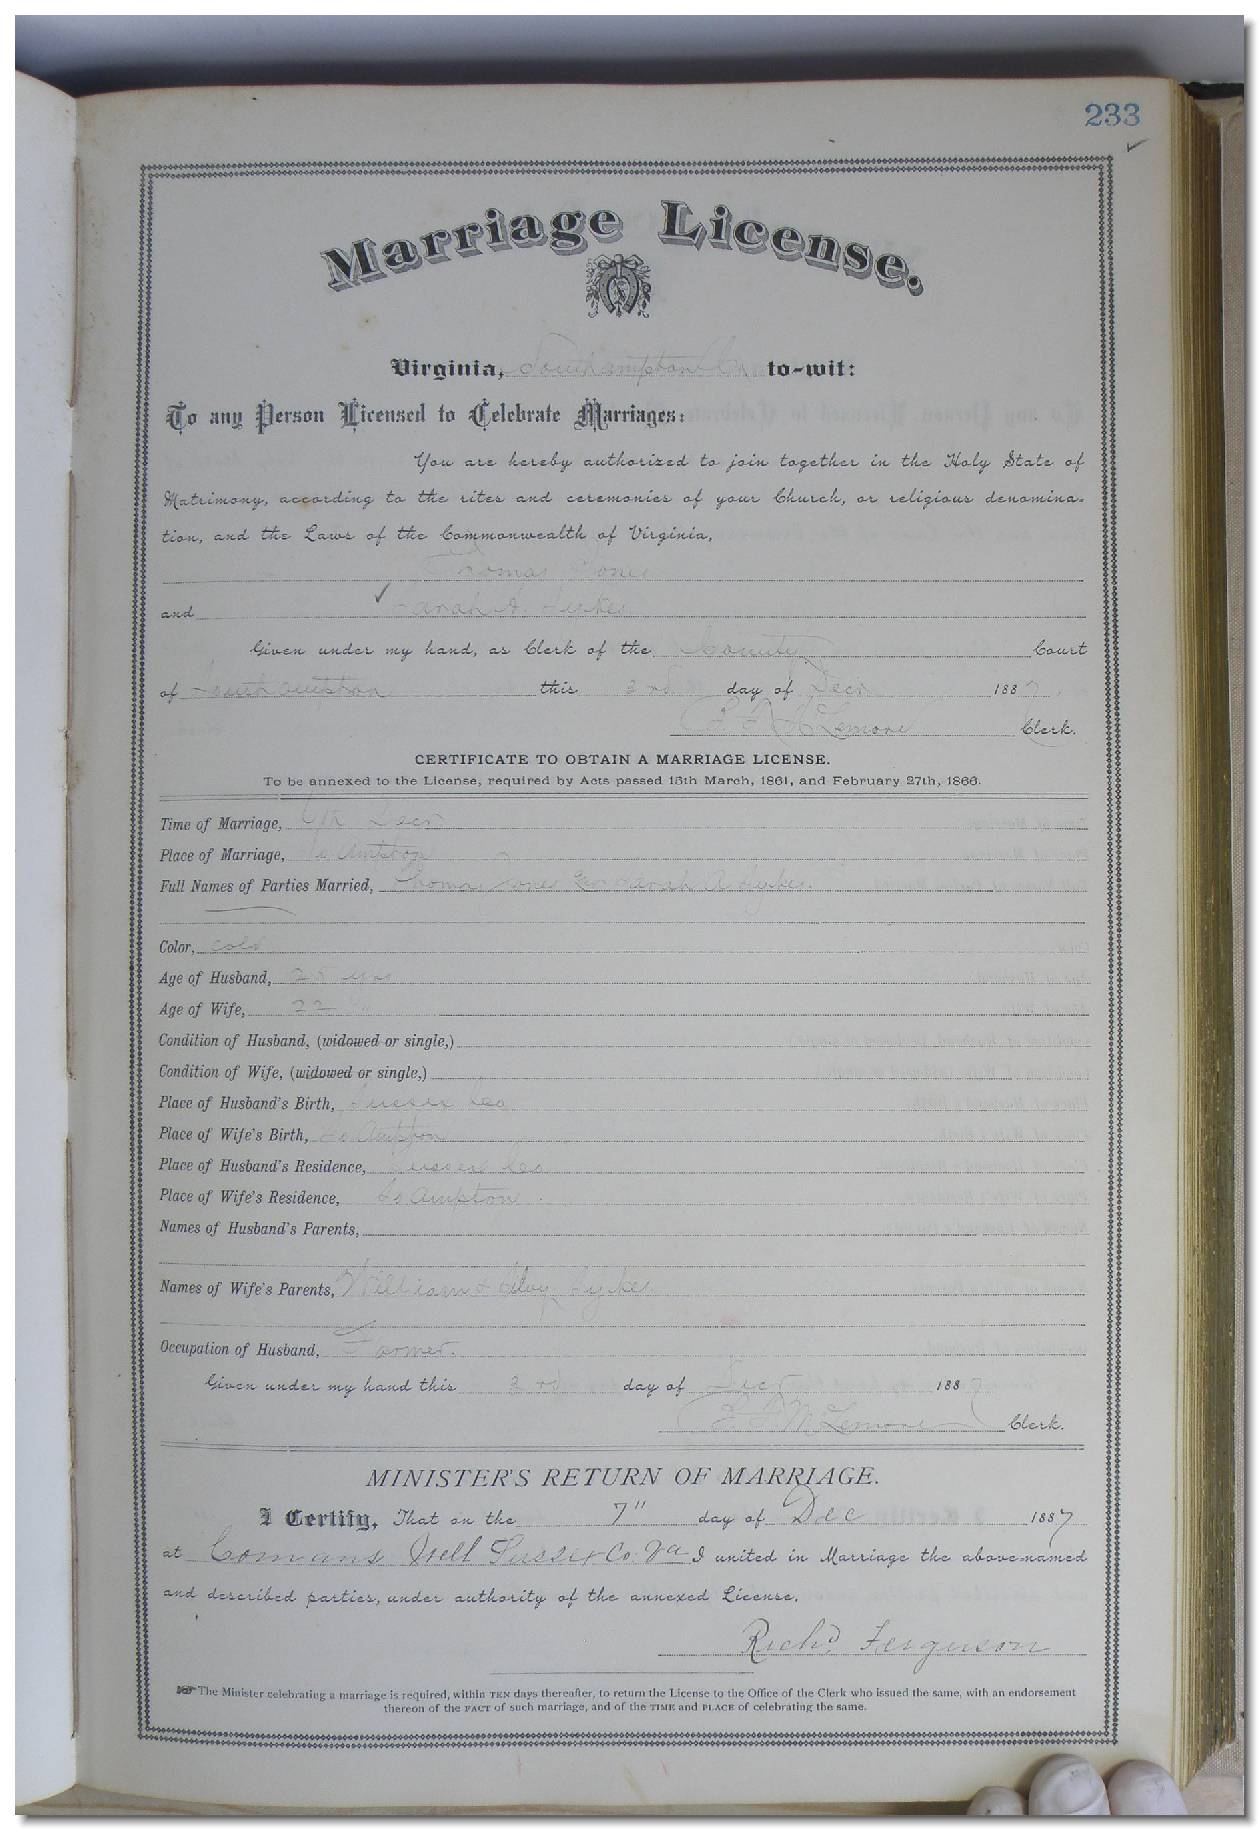 233
Marriage License.
Virginia, Southampton Co. to-wit:
To any Person Licensed to Celebrate Marriages:
You are hereby authorized to join together in the Holy State of
Matrimony, according to the rites and ceremonies of your Church, or religious denomina-
tion, and the Laws of the Commonwealth of Virginia,
Thomas Jones
and Sarah A. Sykes
Given under my hand, as Clerk of the County Court
of Southampton this 3rd day of Decr 1887
McLemore Clerk.
CERTIFICATE TO OBTAIN A MARRIAGE LICENSE.
To be annexed to the License, required by Acts passed 15th March, 1861, and February 27th, 1866.
Time of Marriage, Decr
Place of Marriage, So Ampton
Full Names of Parties Married, Thomas Jones & Sarah A Sykes.
Color, cold
Age of Husband, 28 yrs
Age of Wife, 22 "
Condition of Husband, (widowed or single,)
Condition of Wife, (widowed or single,)
Place of Husband's Birth, Sussex Co
Place of Wife's Birth, So Ampton
Place of Husband's Residence, Sussex Co
Place of Wife's Residence, So Ampton
Names of Husband's Parents,
Names of Wife's Parents, William & Sykes
Occupation of Husband, Farmer.
Given under my hand this 3rd day of Decr 1887
McLemore Clerk.
MINISTER'S RETURN OF MARRIAGE.
I Certify, That on the 7" day of Dec 1887
at Comans Well Sussex Co. Va I united in Marriage the above-named
and described parties, under authority of the annexed License.
Richd Ferguson
The Minister celebrating a marriage is required, within TEN days thereafter, to return the License to the Office of the Clerk who issued the same, with an endorsement
thereon of the FACT of such marriage, and of the TIME and PLACE of celebrating the same.